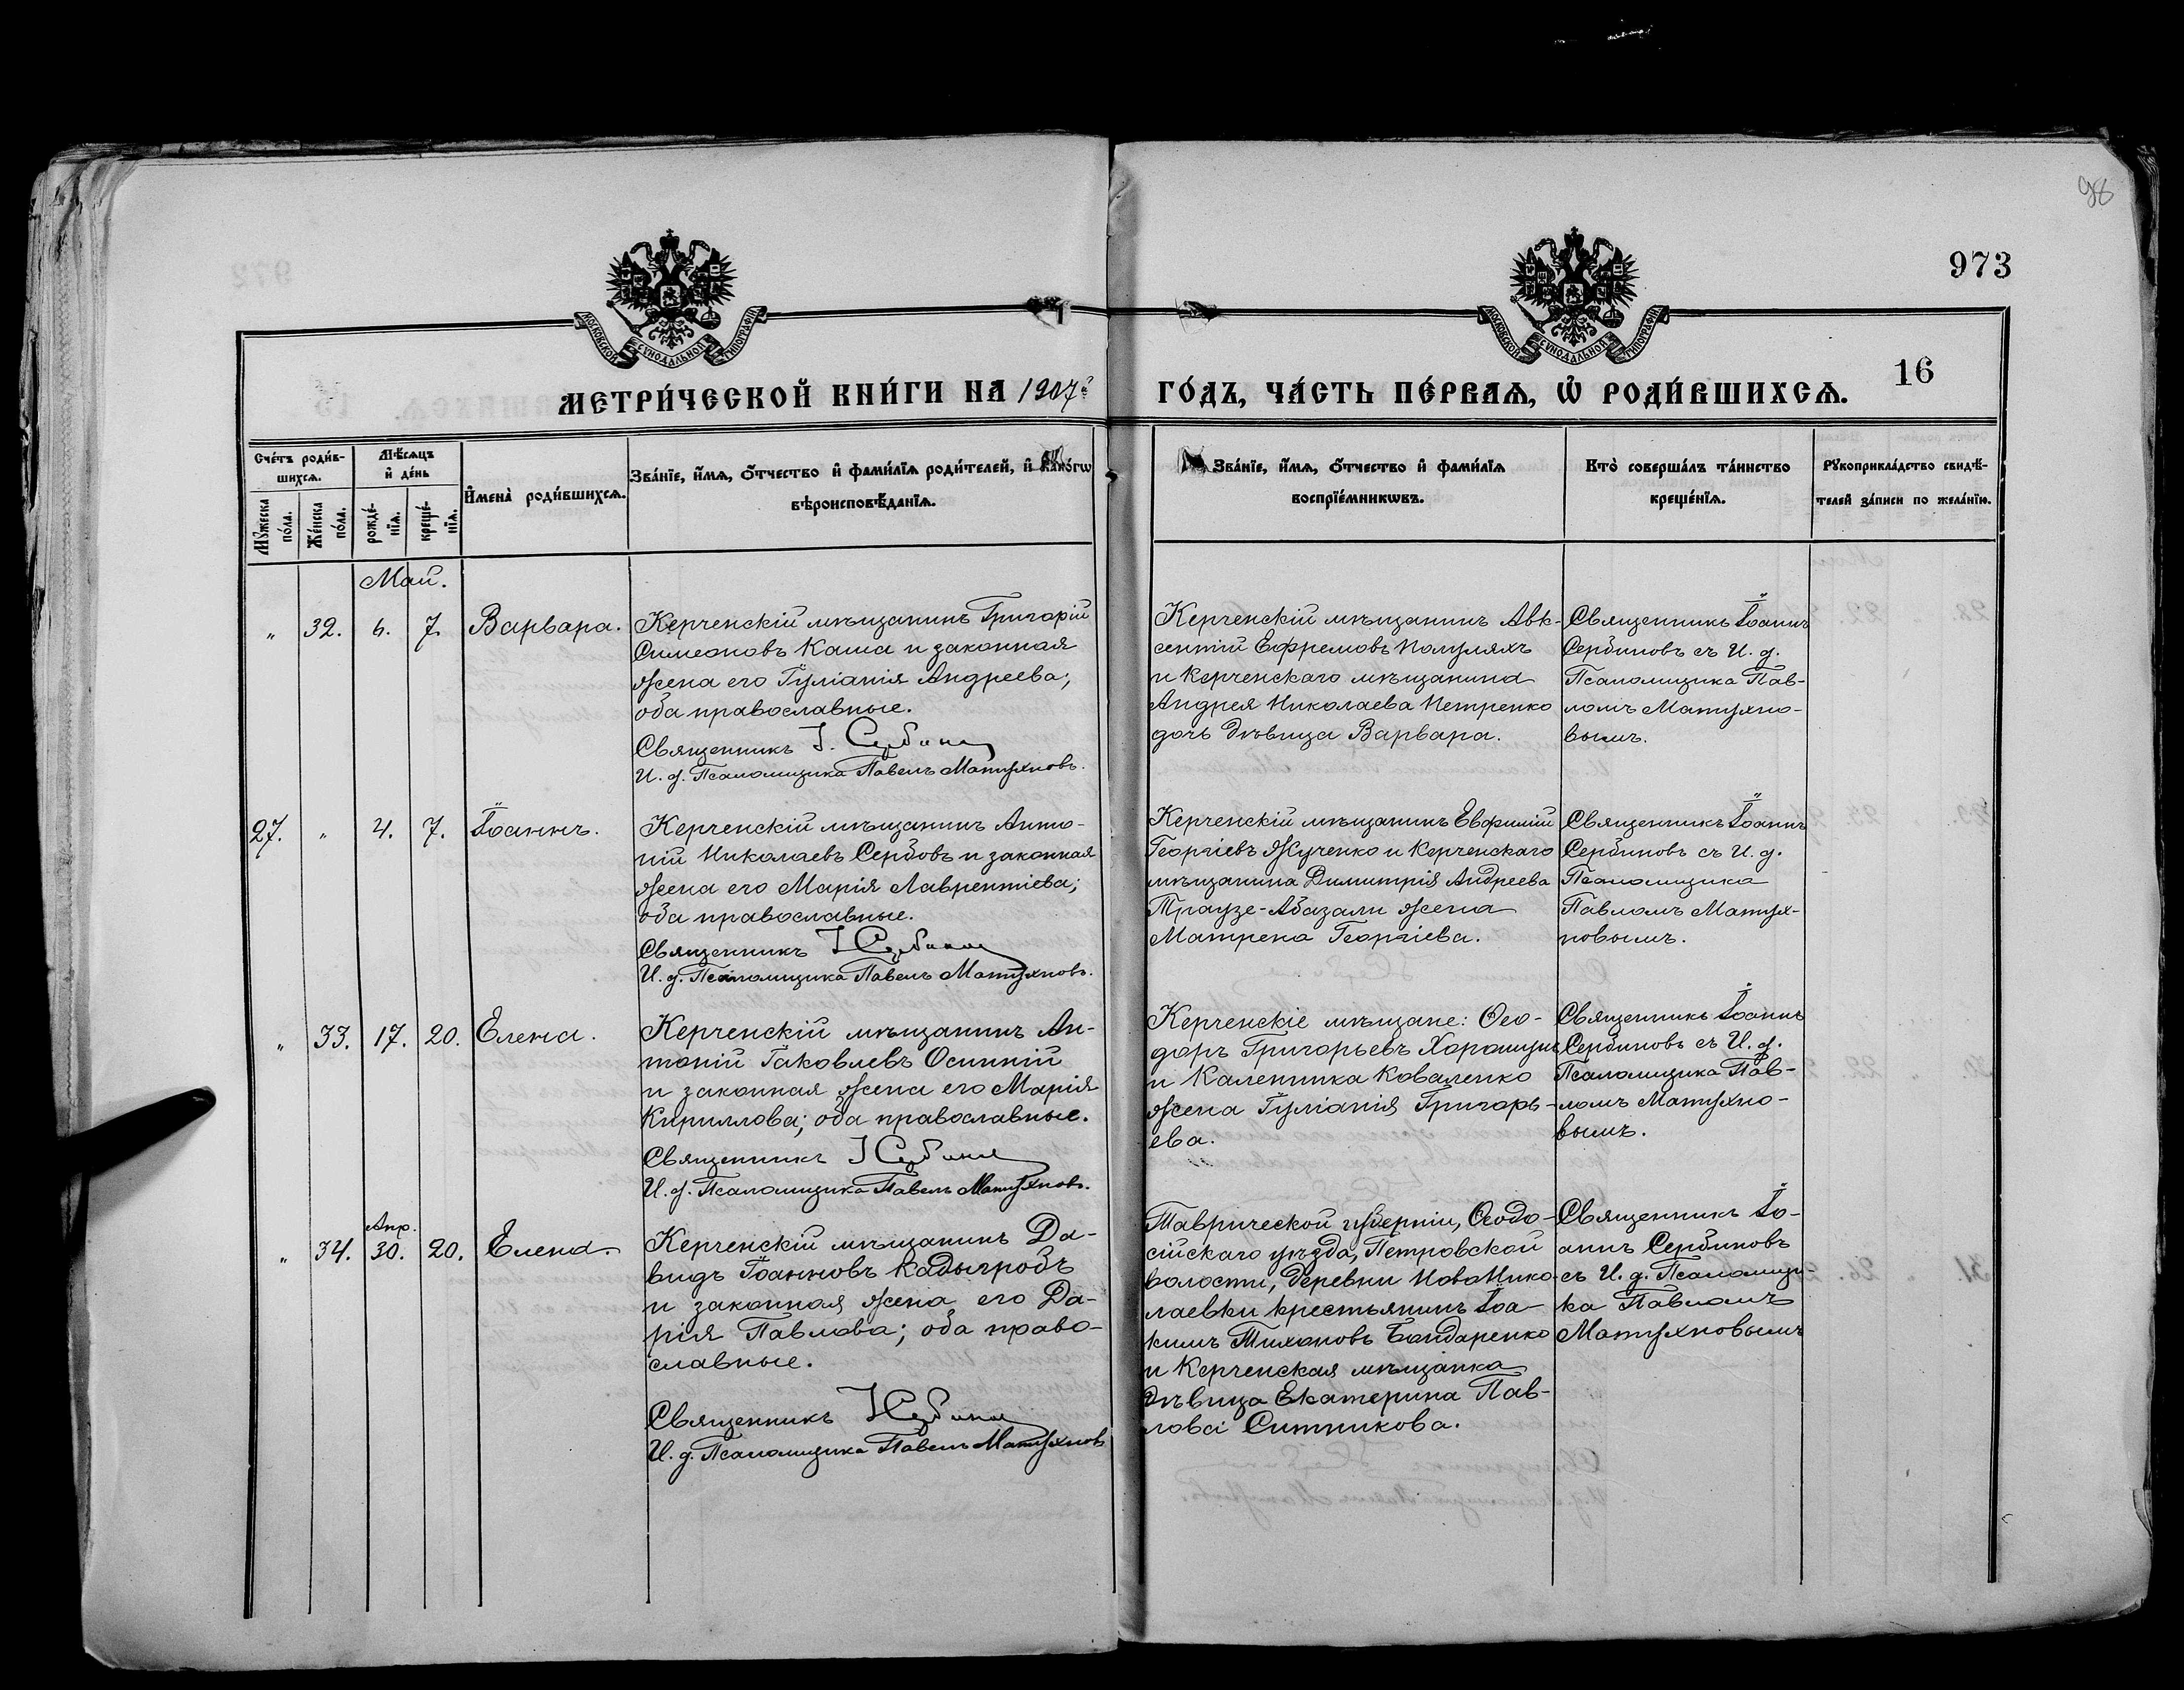 98
973
МОСКОВСКОЙ СѴНОДАЛЬНОЙ ТИПОГРАФІИ
МОСКОВСКОЙ СѴНОДАЛЬНОЙ ТИПОГРАФІИ
16
МЕТРИ́ЧЕСКОЙ КНИ́ГИ НА 1907й
ГО́ДЪ, ЧА́СТЬ ПЕ́РВАѦ, Ѡ҆ РОДИ́ВШИХСѦ.
Сче́тъ роди́в-
шихсѧ.
Мꙋ́жеска по́ла.
Же́нска по́ла.
Мѣ́сѧцъ
и҆ де́нь
рожде́-
нїѧ.
креще́-
нїѧ.
И҆мена̀ роди́вшихсѧ.
Зва́нїе, и҆́мѧ, ѻ҆́тчество и҆ фами́лїѧ роди́телей, и҆ како́гѡ
вѣроисповѣ́данїѧ.
Зва́нїе, и҆́мѧ, ѻ҆́тчество и҆ фами́лїѧ
воспрїе́мникѡвъ.
Кто̀ соверша́лъ та́инство
креще́нїѧ.
Рꙋкоприкла́дство свидѣ́-
телей за́писи по жела́нїю.
Май.
" 32. 6. 7. Варвара.
Керченскій мѣщанинъ Григорій
Симеоновъ Каша и законная
жена его Іуліанія Андреева;
оба православные.
Священникъ І. Сербинов
И. д. Псаломщика Павелъ Матухновъ.
Керченскій мѣщанинъ Авк-
сентій Ефремовъ Полуляхъ
и Керченскаго мѣщанина
Андрея Николаева Петренко
дочь дѣвица Варвара.
Священникъ Іоаннъ
Сербиновъ съ И. д.
Псаломщика Пав-
ломъ Матухно-
вымъ.
27. " 4. 7. Іоаннъ.
Керченскій мѣщанинъ Анто-
ній Николаевъ Сербовъ и законная
жена его Марія Лаврентіева;
оба православные.
Священникъ І Сербинов
И. д. Псаломщика Павелъ Матухновъ.
Керченскій мѣщанинъ Евфимій
Георгіевъ Жученко и Керченскаго
мѣщанина Димитрія Андреева
Траузе-Абазали жена
Матрена Георгіева.
Священникъ Іоаннъ
Сербиновъ съ И. д.
Псаломщика
Павломъ Матух-
новымъ.
" 33. 17. 20. Елена.
Керченскій мѣщанинъ Ан-
тоній Іаковлевъ Осинній
и законная жена его Марія
Кириллова; оба православные.
Священникъ І Сербинов
И. д. Псаломщика Павелъ Матухновъ.
Керченскіе мѣщане: Ѳео-
доръ Григорьевъ
и Каленника Коваленко
жена Іуліанія Григорь-
ева.
Священникъ Іоаннъ
Сербиновъ съ И. д.
Псаломщика Пав-
ломъ Матухно-
вымъ.
Апр.
" 34. 30. 20. Елена.
Керченскій мѣщанинъ Да-
видъ Іоанновъ Кадыгробъ
и законная жена его Да-
рія Павлова; оба право-
славные.
Священникъ І Сербинов
И. д. Псаломщика Павелъ Матухновъ
Таврической губерніи, Ѳеодо-
сійскаго уѣзда, Петровской
волости, деревни НовоНико-
лаевки крестьянинъ Іоа-
кимъ Тихоновъ Бондаренко
и Керченская мѣщанка
дѣвица Екатерина Пав-
лова Ситникова.
Священникъ Іо-
аннъ Сербиновъ
съ И. д. Псаломщи-
ка Павломъ
Матухновымъ